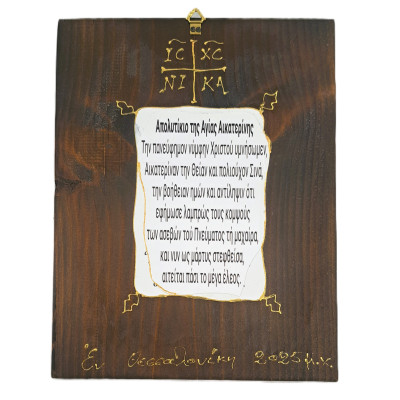 IC XC
NI KA
Απολυτίκιο της Αγίας Αικατερίνης
Την πανεύφημον νύμφην Χριστού υμνήσωμεν,
Αικατερίναν την Θείαν και πολιούχον Σινά,
την βοήθειαν ημών και αντίληψιν ότι
εφήμωσε λαμπρώς τους κομψούς
των ασεβών τού Πνεύματος τή μαχαίρα,
και νυν ως μάρτυς στεφθείσα,
αιτείται πάσι το μέγα έλεος.
Ἐν Θεσσαλονίκη 2025 μ.χ.